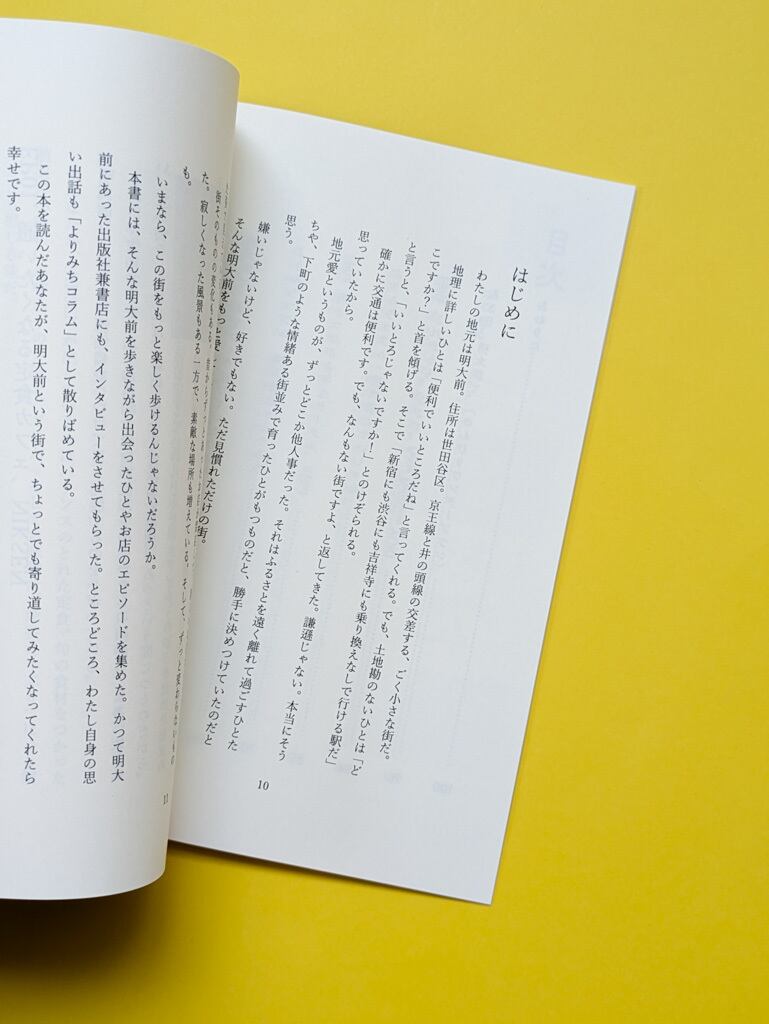 はじめに
わたしの地元は明大前。住所は世田谷区。京王線と井の頭線の交差する、ごく小さな街だ。
地理に詳しいひとは「便利でいいところだね」と言ってくれる。でも、土地勘のないひとは「ど
こですか？」と首を傾げる。そこで「新宿にも渋谷にも吉祥寺にも乗り換えなしで行ける駅だ」
と言うと、「いいとろじゃないですかー」とのけぞられる。
確かに交通は便利です。でも、なんもない街ですよ、と返してきた。謙遜じゃない。本当にそう
思っていたから。
地元愛というものが、ずっとどこか他人事だった。それはふるさとを遠く離れて過ごすひとた
ちや、下町のような情緒ある街並みで育ったひとがもつものだと、勝手に決めつけていたのだと
思う。
嫌いじゃないけど、好きでもない。ただ見慣れただけの街。
そんな明大前をもっと愛
10
街そのものの変化もある。
た。寂しくなった風景もある一方で、素敵な場所も増えている。そして、ずっと変わらないもの
も。
いまなら、この街をもっと楽しく歩けるんじゃないだろうか。
本書には、そんな明大前を歩きながら出会ったひとやお店のエピソードを集めた。かつて明大
前にあった出版社兼書店にも、インタビューをさせてもらった。ところどころ、わたし自身の思
い出話も「よりみちコラム」として散りばめている。
この本を読んだあなたが、明大前という街で、ちょっとでも寄り道してみたくなってくれたら
幸せです。
11